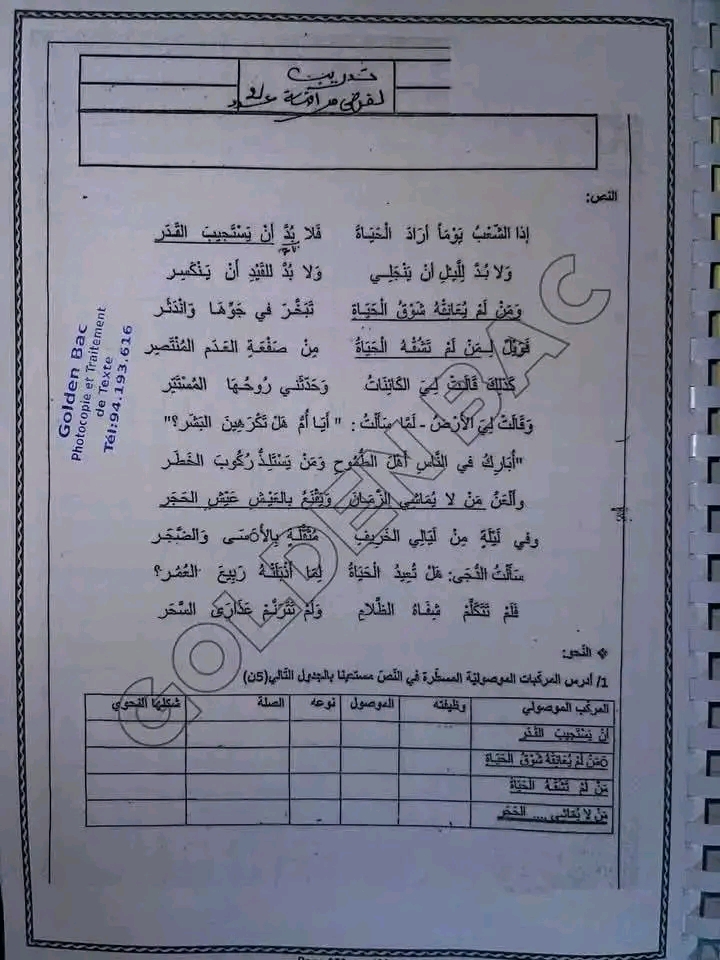 تدريب
لفرض مراقبة عدد
النص:
إذا الشَّعْبُ يَوْمًا أرَادَ الْحَيَاةَ فَلا بُدَّ أَنْ يَسْتَجِيبَ القَدَر
وَلا بُدَّ لِلَّيْلِ أَنْ يَنْجَلِـي وَلا بُدَّ للقَيْدِ أَنْ يَنْكَسِـر
وَمَنْ لَمْ يُعَانِقْهُ شَوْقُ الْحَيَاةِ تَبَخَّرَ في جَوِّهَا وَانْدَثَـر
فَوَيْلٌ لِـمَنْ لَمْ تَشُقْـهُ الْحَيَاةُ مِنْ صَفْعَةِ العَـدَمِ المُنْتَصِر
كَذلِكَ قَالَتْ لِـيَ الكَائِنَاتُ وَحَدَّثَنـي رُوحُـهَا المُسْتَتِر
وَقَالَتْ لِيَ الأَرْضُ - لَمَّا سَأَلْتُ : " أَيَـا أُمُّ هَلْ تَكْرَهِينَ البَشَر؟"
"أُبَارِكُ في النَّاسِ أَهْلَ الطُّمُوحِ وَمَنْ يَسْتَلِذُّ رُكُوبَ الخَطَر
وأَلْعَنُ مَنْ لا يُمَاشِي الزَّمَانَ وَيَقْنَعُ بِالعَيْشِ عَيْشِ الحَجَر
وفي لَيْلَةٍ مِنْ لَيَالِي الخَرِيفِ مُثَقَّلَةٍ بِالأَسَى وَالضَّجَر
سَأَلْتُ الدُّجَى: هَلْ تُعِيدُ الْحَيَاةُ لِمَا أَذْبَلَتْـهُ رَبِيعَ العُمُر؟
فَلَمْ تَتَكَلَّمْ شِفَاهُ الظَّلامِ وَلَمْ تَتَرَنَّـمْ عَذَارَى السَّحَر
❖ النّحو:
1/ أدرس المركّبات الموصوليّة المسطّرة في النّصّ مستعينا بالجدول التّالي(5ن)
المركّب الموصولي وظيفته الموصول نوعه الصلة شكلها النحوي
أَنْ يَسْتَجِيبَ القَدَر
مَنْ لَمْ يُعَانِقْهُ شَوْقُ الْحَيَاةِ
مَنْ لَمْ تَشُقْـهُ الْحَيَاةُ
مَنْ لا يُمَاشِي .... الحَجَر
Golden Bac
Photocopie et Traitement
de Texte
Tél:94.193.616
GOLDEN BAC